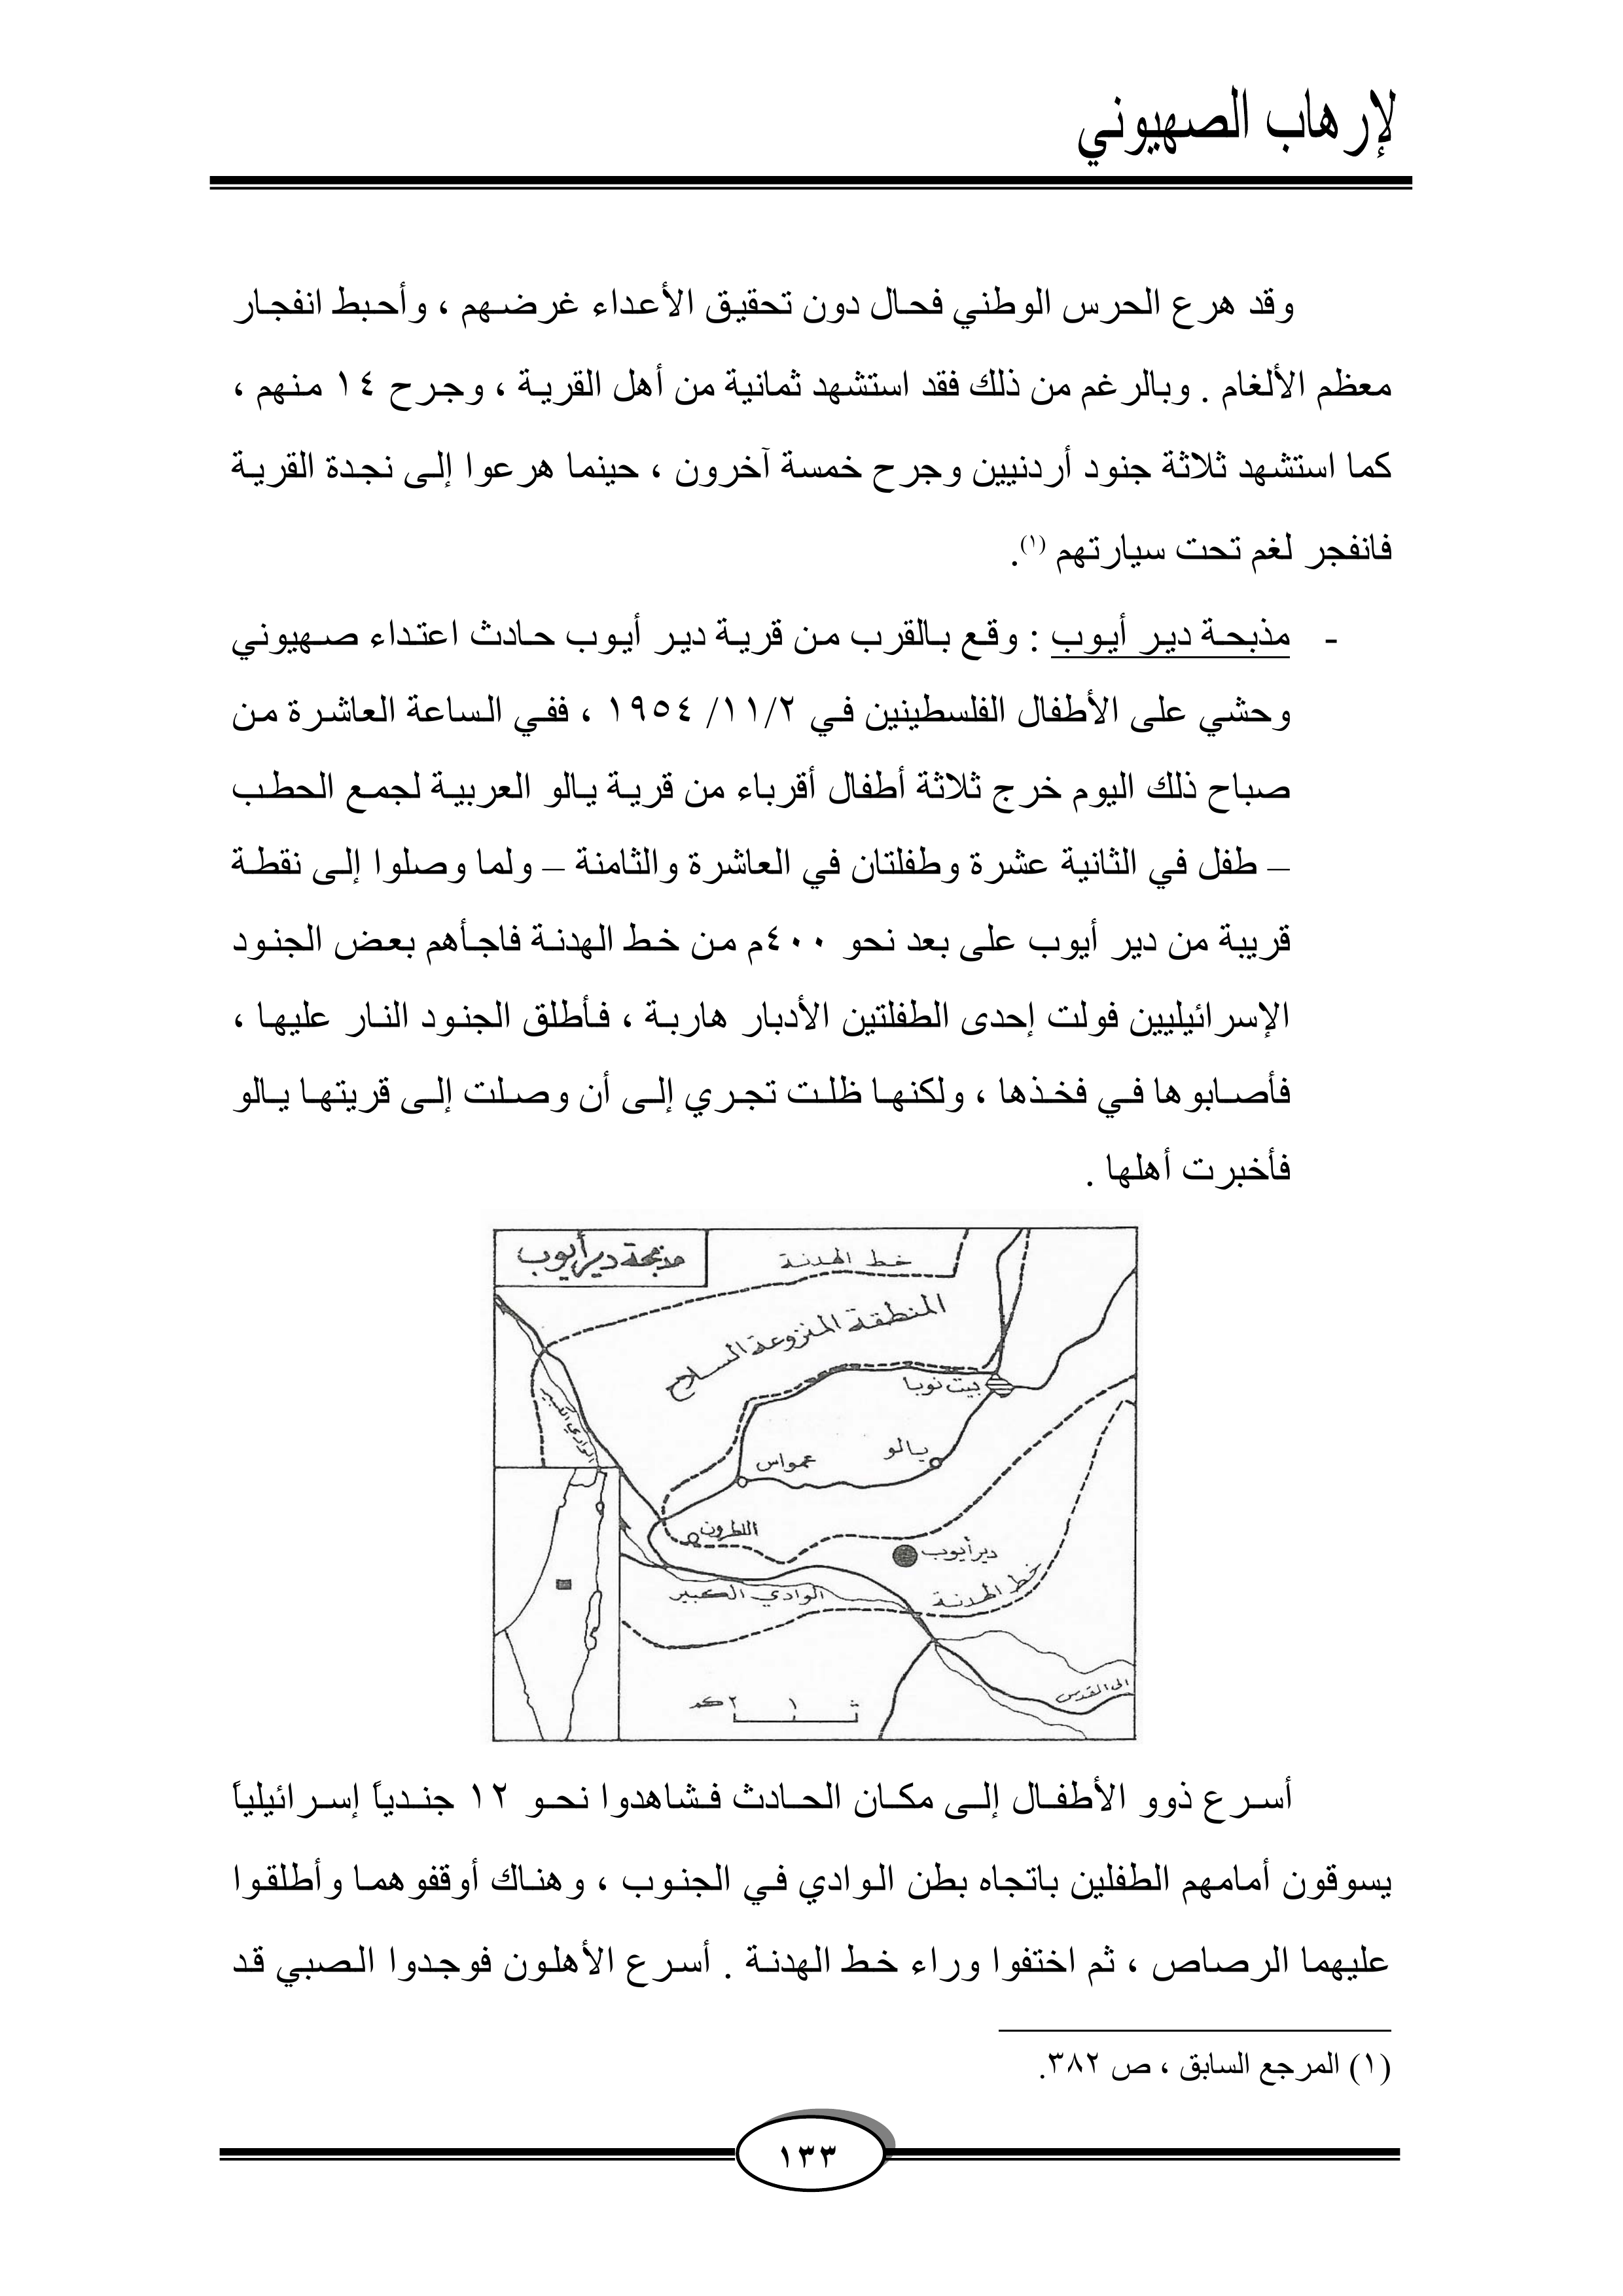 لإرهاب الصهيوني
وقد هرع الحرس الوطني فحال دون تحقيق الأعداء غرضهم ، وأحبط انفجار
معظم الألغام . وبالرغم من ذلك فقد استشهد ثمانية من أهل القرية ، وجرح ١٤ منهم ،
كما استشهد ثلاثة جنود أردنيين وجرح خمسة آخرون ، حينما هرعوا إلى نجدة القرية
فانفجر لغم تحت سيارتهم (١).
- مذبحة دير أيوب : وقع بالقرب من قرية دير أيوب حادث اعتداء صهيوني
وحشي على الأطفال الفلسطينين في ١١/٢/ ١٩٥٤ ، ففي الساعة العاشرة من
صباح ذلك اليوم خرج ثلاثة أطفال أقرباء من قرية يالو العربية لجمع الحطب
– طفل في الثانية عشرة وطفلتان في العاشرة والثامنة – ولما وصلوا إلى نقطة
قريبة من دير أيوب على بعد نحو ٤٠٠م من خط الهدنة فاجأهم بعض الجنود
الإسرائيليين فولت إحدى الطفلتين الأدبار هاربة ، فأطلق الجنود النار عليها ،
فأصابوها في فخذها ، ولكنها ظلت تجري إلى أن وصلت إلى قريتها يالو
فأخبرت أهلها .
مذبحة دير أيوب
خط الهدنة
المنطقة المنزوعة السلاح
بيت نوبا
الوادي الكبير
يالو
عمواس
اللطرون
دير أيوب
خط الهدنة
الوادي الكبير
الى القدس
١ ٢ كم
أسرع ذوو الأطفال إلى مكان الحادث فشاهدوا نحو ١٢ جندياً إسرائيلياً
يسوقون أمامهم الطفلين باتجاه بطن الوادي في الجنوب ، وهناك أوقفوهما وأطلقوا
عليهما الرصاص ، ثم اختفوا وراء خط الهدنة . أسرع الأهلون فوجدوا الصبي قد
(١) المرجع السابق ، ص ٣٨٢.
١٣٣